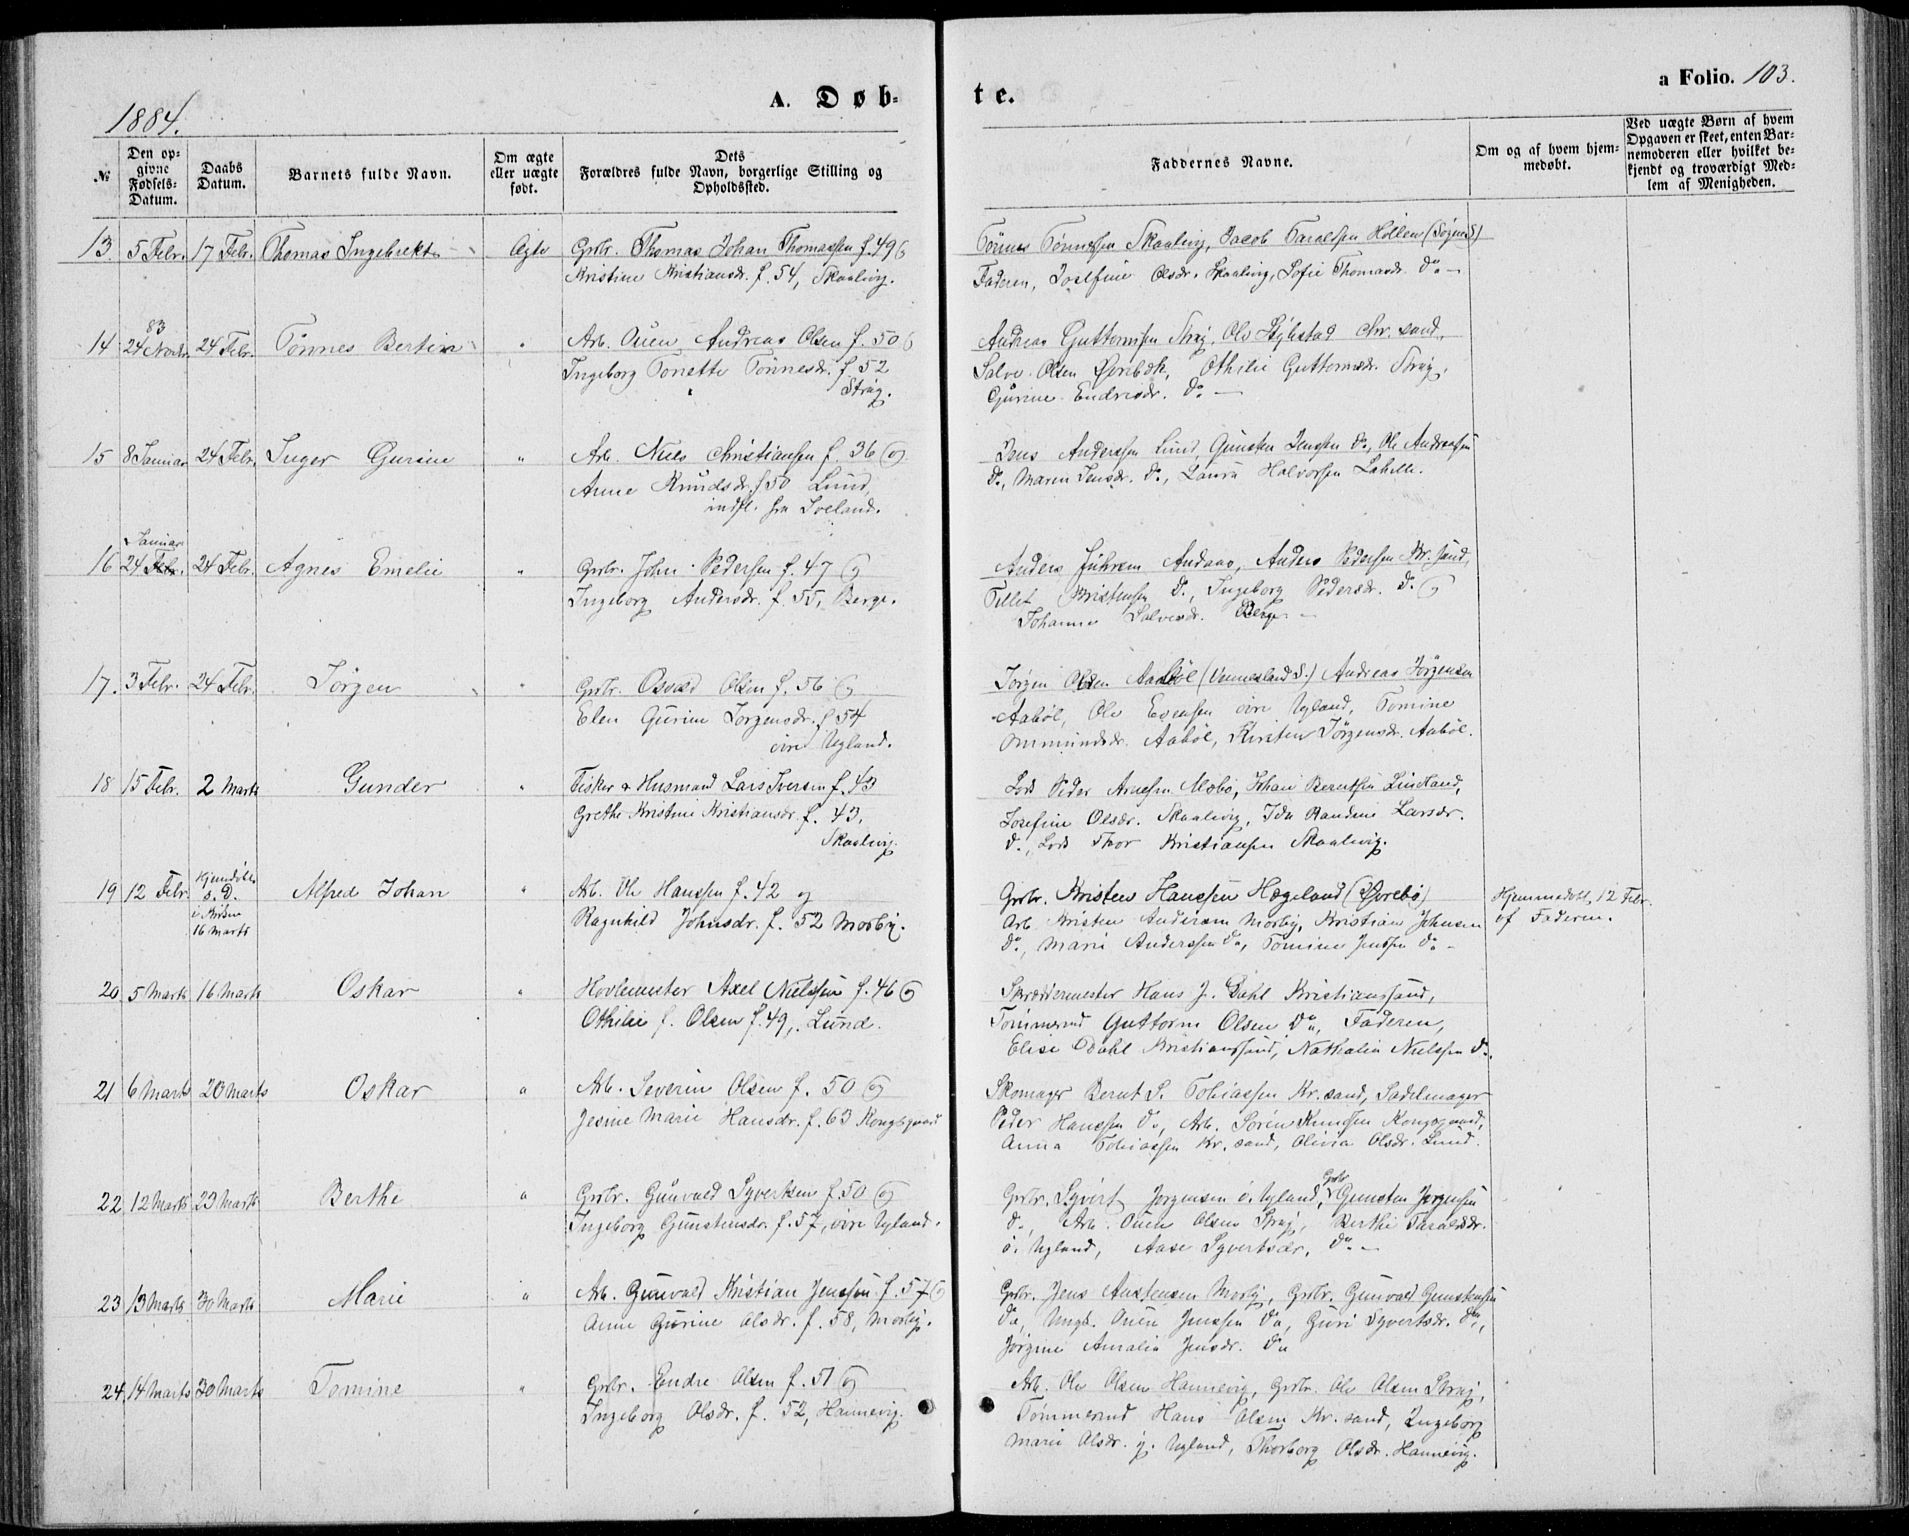 1884.
A. Døb-
te.
a Folio. 103.
№
Den op-
givne
Fødsels-
Datum.
Daabs
Datum.
Barnets fulde Navn.
Om ægte
eller uægte
født.
Dets
Forældres fulde Navn, borgerlige Stilling og
Opholdssted.
Faddernes Navne.
Om og af hvem hjem-
medøbt.
Ved uægte Børn af hvem
Opgaven er skeet, enten Bar-
nemoderen eller hvilket be-
kjendt og troværdigt Med-
lem af Menigheden.
13 5 Febr. 17 Febr. Thomas Ingebrekt Ægte Grbr. Thomas Johan Thomassen f. 49 og
Kristine Kristiansdr. f. 54, Skaalevig.
Tønnes Tønnessen Skaalevig, Jacob Taraldsen Høllen (Søgne S)
Faderen, Josefine Olsdr. Skaalevig, Sofie Thomasdr. Do
83
14 24 Novbr. 24 Febr. Tønnes Bertin " Arb. Ouen Andreas Olsen f. 50 og
Ingeborg Tonette Tønnesdr. f. 52
Straj.
Andreas Guttormsen Straj, Ole Chr. sand,
Salve Olsen Øvrebæk, Othilie Guttormsdr. Straj,
Gurine Endresdr. Do
15 8 Januar 24 Febr. Inger Gurine " Arb. Niels Christiansen f. 36 og
Anne Knudsdr. f 50 Lund,
indfl. fra Iveland.
Jens Anderssen Lund, Gunsten Jenssen Do, Ole Andreassen
Do, Maren Jensdr. Do, Laura Halvorsen Labelle.
Januar
16 24 Febr. 24 Febr. Agnes Emelie " Grbr. John Pedersen f. 47 og
Ingeborg Andersdr. f. 55, Berge.
Anders Andaas, Anders Pedersen Kr. sand,
Tellef Kristensen Do, Ingeborg Pedersdr. Do og
Johanne Salvesdr. Berge
17. 3 Febr. 24 Febr. Jørgen " Grbr. Osvald Olsen f. 56 og
Elen Gurine Jørgensdr. f 54
øvre Ugland.
Jørgen Olsen Aabøl (Vennesland S.) Andreas Jørgensen
Aabøl, Ole Evensen øvre Ugland, Tomine
Ommundsdr. Aabøl, Kirsten Jørgensdr. Aabøl.
18 15 Febr. 2 Marts Gunder " Fisker & Husmand Lars Iversen f. 43
Grethe Kristine Kristiansdr. f. 43,
Skaalevig.
Lods Peder Arnesen Mæbø, Johan Berntsen Lindland,
Josefine Olsdr. Skaalevig, Ida Randine Larsdr.
Do, Lods Thor Kristiansen Skaalevig.
19 12 Febr. Hjemdøbt
s. D.
i Kirken
16 Marts
Alfred Johan " Arb. Ole Hanssen f. 42 og
Ragnhild Johnsdr. f. 52 Mosby.
Grbr. Kristen Hanssen Hægeland (Øvrebø)
Arb. Kristen Andersen Mosby, Kristian Johnsen
Do, Marie Anderssen Do, Tomine Jenssen Do
Hjemmedøbt, 12 Febr.
af Faderen.
20 5 Marts 16 Marts Oskar " Hovlemester Axel Nielssen f. 46 og
Othilie f. Olsen f. 49, Lund.
Skræddermester Hans J. Dahl Kristianssand,
Tømmermd Guttorm Olsen Do, Faderen,
Elise Dahl Kristianssand, Nathalia Nielssen Do
21 6 Marts 20 Marts Oskar " Arb. Severin Olsen f. 50 og
Jesine Marie Hansdr. f. 63 Kongsgaard
Skomager Bernt S. Tobiassen Kr. sand, Sadelmager
Peder Hanssen Do, Arb. Søren Knudsen Kongsgaard,
Anna Tobiassen Kr. sand, Olivia Olsdr. Lund.
22 12 Marts 23 Marts Berthe " Grbr. Gunvald Syvertsen f. 50 og
Ingeborg Gunstensdr. f. 57, øvre Ugland.
Grbr. Syvert Jørgensen ø. Ugland, Grbr. Gunsten Jørgensen
Do, Arb. Ouen Olsen Straj, Berthe Taraldsdr.
ø. Ugland, Aase Syvertsdr. Do
23 13 Marts 30 Marts Marie " Arb. Gunvald Kristian Jenssen f. 57 og
Anne Gurine Olsdr. f. 58, Mosby.
Grbr. Jens Austensen Mosby, Grbr. Gunvald Gunstensen
Do, Ungk. Ouen Jenssen Do, Guri Syvertsdr. Do,
Jørgine Amalia Jensdr. Do
24. 14 Marts 30 Marts Tomine " Grbr. Endre Olsen f. 51 og
Ingeborg Olsdr. f. 52, Hannevig.
Arb. Ole Olsen Hannevig, Grbr. Ole Olsen Straj,
Tømmermd Hans Olsen Kr. sand, Ingeborg
Marie Olsdr. y. Ugland, Thorborg Olsdr. Hannevig.